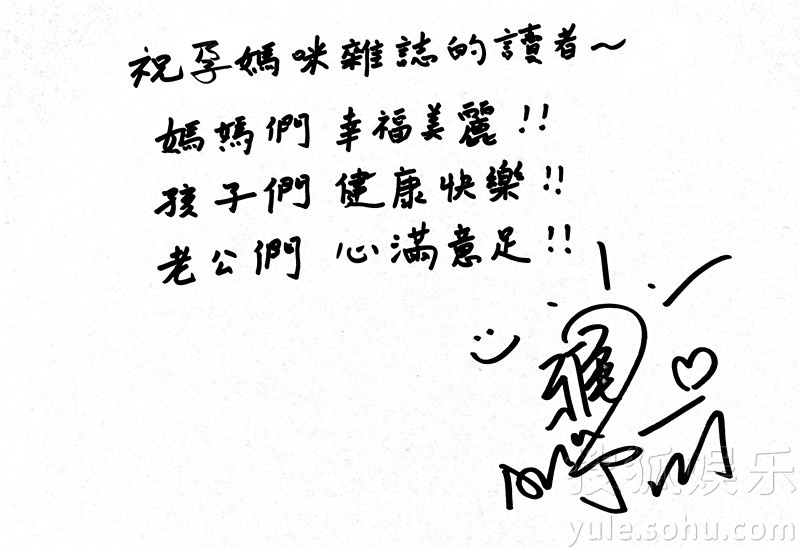 祝孕媽咪雜誌的讀者～
媽媽們 幸福美麗!!
孩子們 健康快樂!!
老公們 心滿意足!!
搜狐娱乐
yule.sohu.com